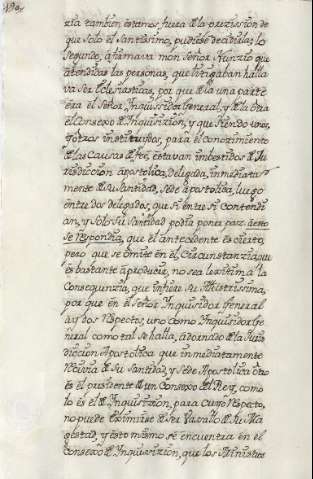 ria tambien estamos, fuera de la precission de
que solo el Santissimo, pudiese decidirlas; lo
segundo, afirmava mon señor Nunzio que
atendidas las personas, que litigaban halla
va ser Eclesiasticas, por que de la una parte
era el señor Inquissidor General, y de la otra
el Consexo de Inquisizion, y que siendo unos,
y otros instituydos, para el conozimiento
de las Causas de fee, estavan imbestidos de Ju
risdiccion apostolica, delegada, inmediata
mente de su Santidad, y sede apostolica, luego
entre dos delegados, que si, entre si contendi
an, y solo su Santidad podia poner paz: a esto
se respondia, que el antecedente es cierto,
pero que se omite en el Circunstanzia, que
es bastante a produzir, no sea lexitima la
Consequenzia, que infiere su Illustrissima,
por que en el señor Inquisidor General
ay dos respectos, uno como Inquisidor Ge
neral como tal se halla, adornado de la Juris
diccion Apostolica que inmediatamente
reciva de su Santidad, y Sede Apostolica otro
es el presidente de un Consexo del Rey, como
lo es el de Inquisizion, para cuyo respecto,
no puede eximirse de ser vasallo de su Ma
gestad, y esto mismo se encuentra en el
Consexo de Inquisizion, que los Ministros